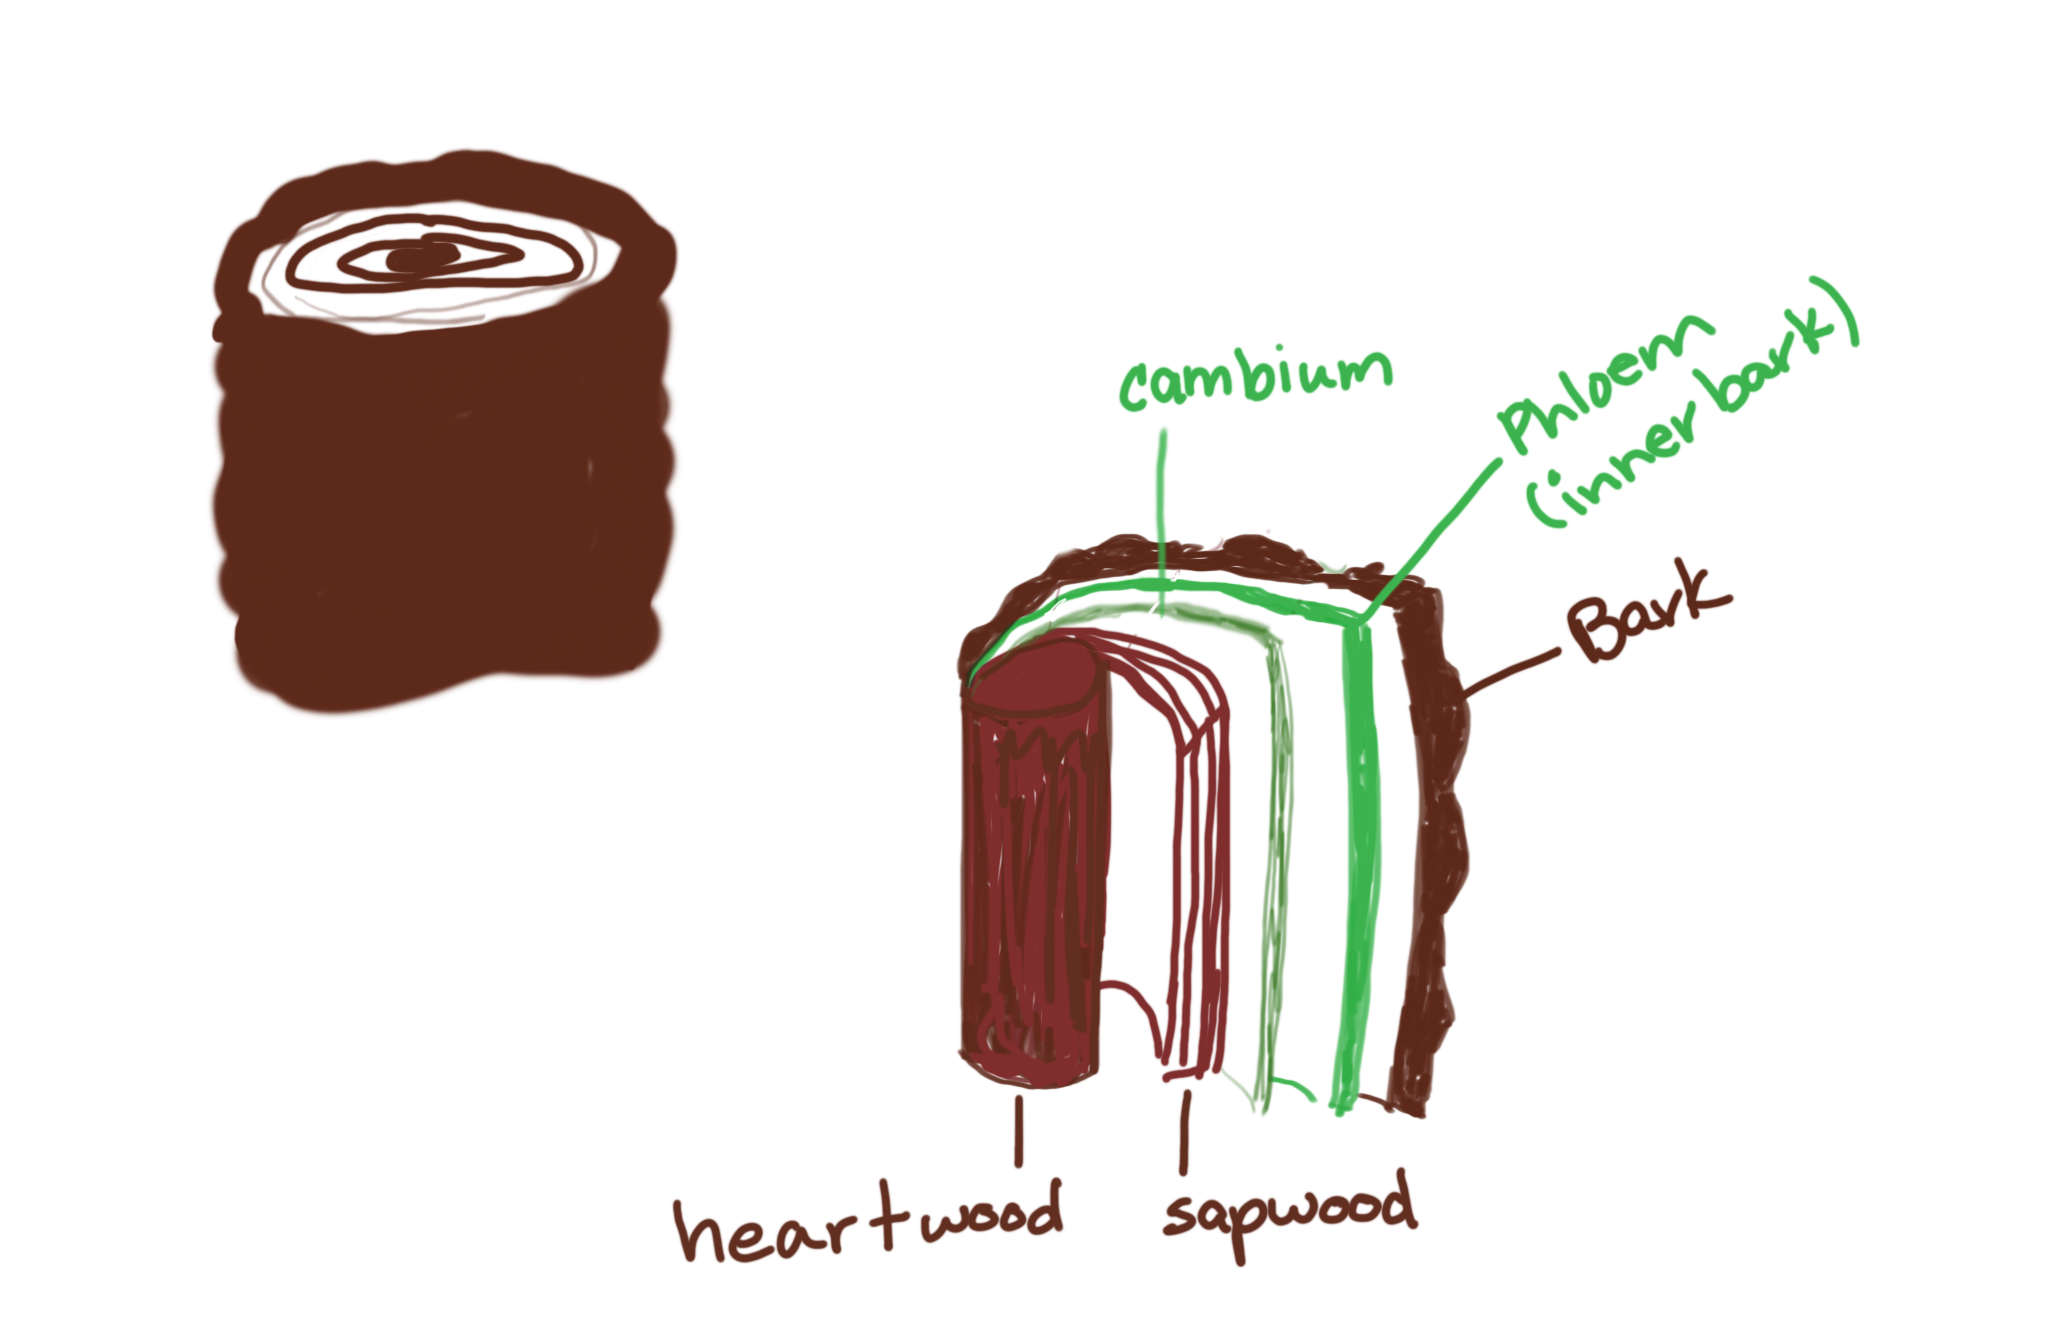 cambium
Phloem
(inner bark)
Bark
heartwood
sapwood